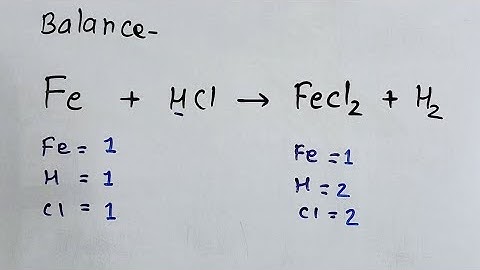 Balance-
Fe + HCl → FeCl₂ + H₂
Fe = 1
H = 1
Cl = 1
Fe = 1
H = 2
Cl = 2